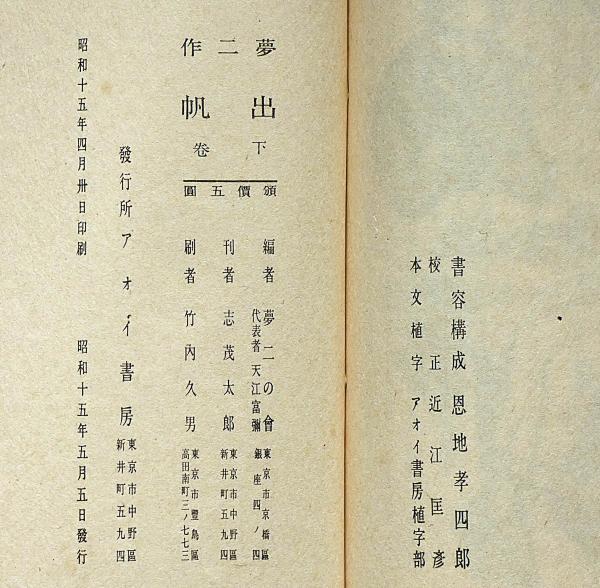 書容構成 恩地孝四郎
校正 近江匡彦
本文植字 アオイ書房植字部
夢二作
出帆
下卷
頒價五圓
編者 夢二の會 東京市京橋區
代表者 天江富彌 銀座四ノ四
刊者 志茂太郎 東京市中野區
新井町五九四
刷者 竹內久男 東京市豐島區
高田南町三ノ七七三
發行所 アオイ書房 東京市中野區
新井町五九四
昭和十五年四月卅日印刷 昭和十五年五月五日發行